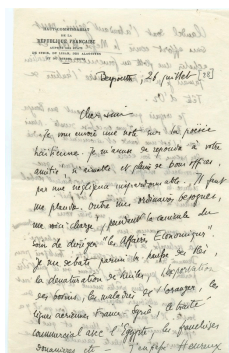 HAUT-COMMISSARIAT
DE LA
RÉPUBLIQUE FRANÇAISE
Beyrouth, 26 juillet [28]
Cher ami
Je vous envoie une note sur la poésie
haïtienne. Je m'excuse de répondre à votre
amitié, si vivante et pleine de bons offices,
par une négligence impardonnable. Il faut
me plaindre. Outre ma ordinaire besogne,
me voici chargé, pendant la canicule du
soin de diriger "les Affaires Économiques".
Je me débats parmi la pêche de
la dénaturation des huiles, l'exportation
des ovins, les maladies de l'oranger, les
lignes aériennes France-Syrie, le traité
commercial avec l'Égypte, les franchises
douanières etc — J'enfle Heureux